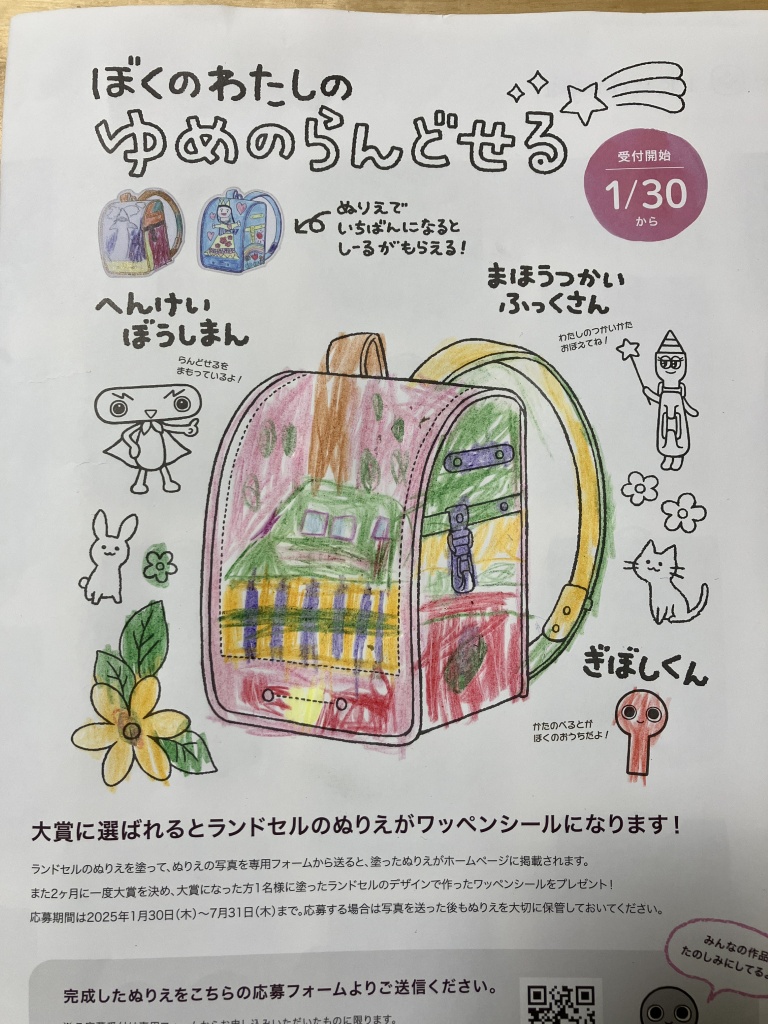 ぼくのわたしの
ゆめのらんどせる
受付開始
1/30
から
ぬりえで
いちばんになると
しーるがもらえる!
へんけい
ぼうしまん
らんどせるを
まもっているよ!
まほうつかい
ふっくさん
わたしのつかいかた
おぼえてね!
ぎぼしくん
かたのべるとが
ぼくのおうちだよ!
大賞に選ばれるとランドセルのぬりえがワッペンシールになります!
ランドセルのぬりえを塗って、ぬりえの写真を専用フォームから送ると、塗ったぬりえがホームページに掲載されます。
また2ヶ月に一度大賞を決め、大賞になった方1名様に塗ったランドセルのデザインで作ったワッペンシールをプレゼント!
応募期間は2025年1月30日(木)〜7月31日(木)まで。応募する場合は写真を送った後もぬりえを大切に保管しておいてください。
みんなの作品
たのしみにしてるよ
完成したぬりえをこちらの応募フォームよりご送信ください。